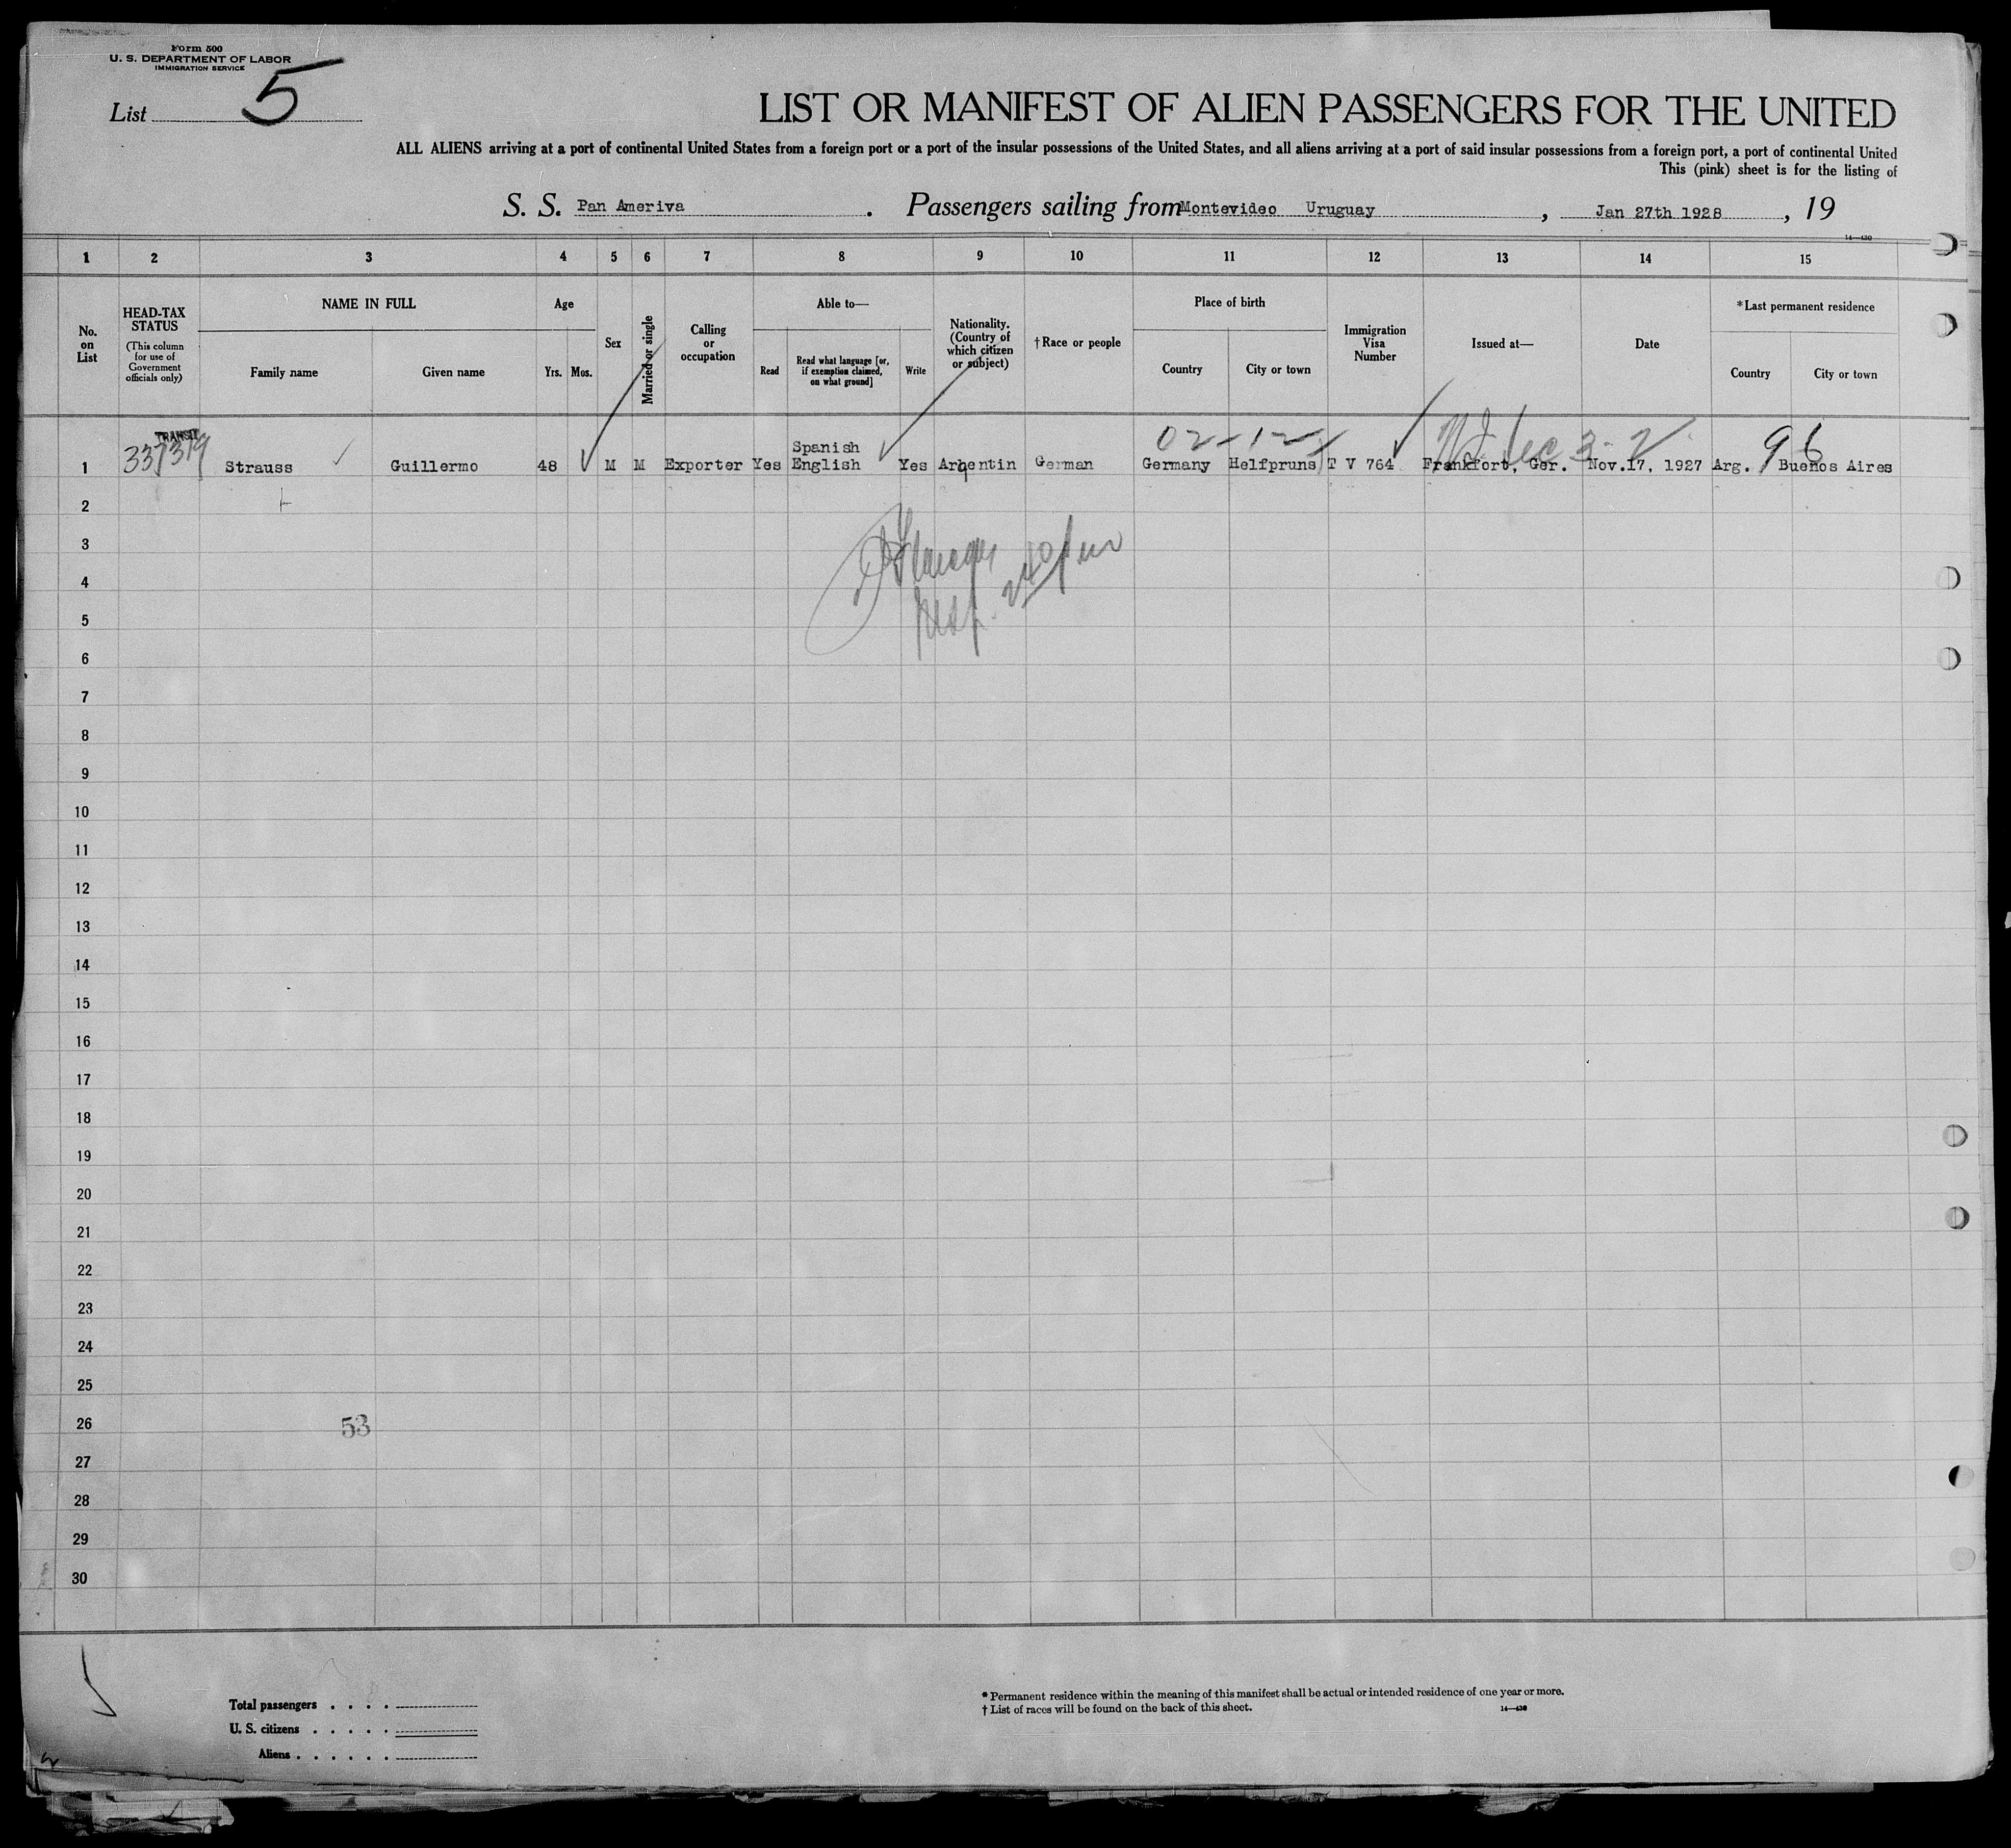 Form 500
U. S. DEPARTMENT OF LABOR
IMMIGRATION SERVICE
List 5
LIST OR MANIFEST OF ALIEN PASSENGERS FOR THE UNITED
ALL ALIENS arriving at a port of continental United States from a foreign port or a port of the insular possessions of the United States, and all aliens arriving at a port of said insular possessions from a foreign port, a port of continental United
This (pink) sheet is for the listing of
S. S. Pan Ameriva . Passengers sailing from Montevideo Uruguay , Jan 27th 1928 , 19
14—430
1 2 3 4 5 6 7 8 9 10 11 12 13 14 15
No. on List
HEAD-TAX STATUS
(This column for use of Government officials only)
NAME IN FULL
Family name Given name
Age
Yrs. Mos.
Sex
Married or single
Calling or occupation
Able to—
Read
Read what language [or, if exemption claimed, on what ground]
Write
Nationality. (Country of which citizen or subject)
†Race or people
Place of birth
Country City or town
Immigration Visa Number
Issued at—
Date
*Last permanent residence
Country City or town
TRANSIT
337319
02-12
96
1 Strauss Guillermo 48 M M Exporter Yes Spanish English Yes Argentin German Germany Helfpruns T V 764 Frankfort, Ger. Nov.17, 1927 Arg. Buenos Aires
2
3
4
5
6
7
8
9
10
11
12
13
14
15
16
17
18
19
20
21
22
23
24
25
26
53
27
28
29
30
Total passengers . . . .
U. S. citizens . . . . .
Aliens . . . . . .
* Permanent residence within the meaning of this manifest shall be actual or intended residence of one year or more.
† List of races will be found on the back of this sheet.
14—430